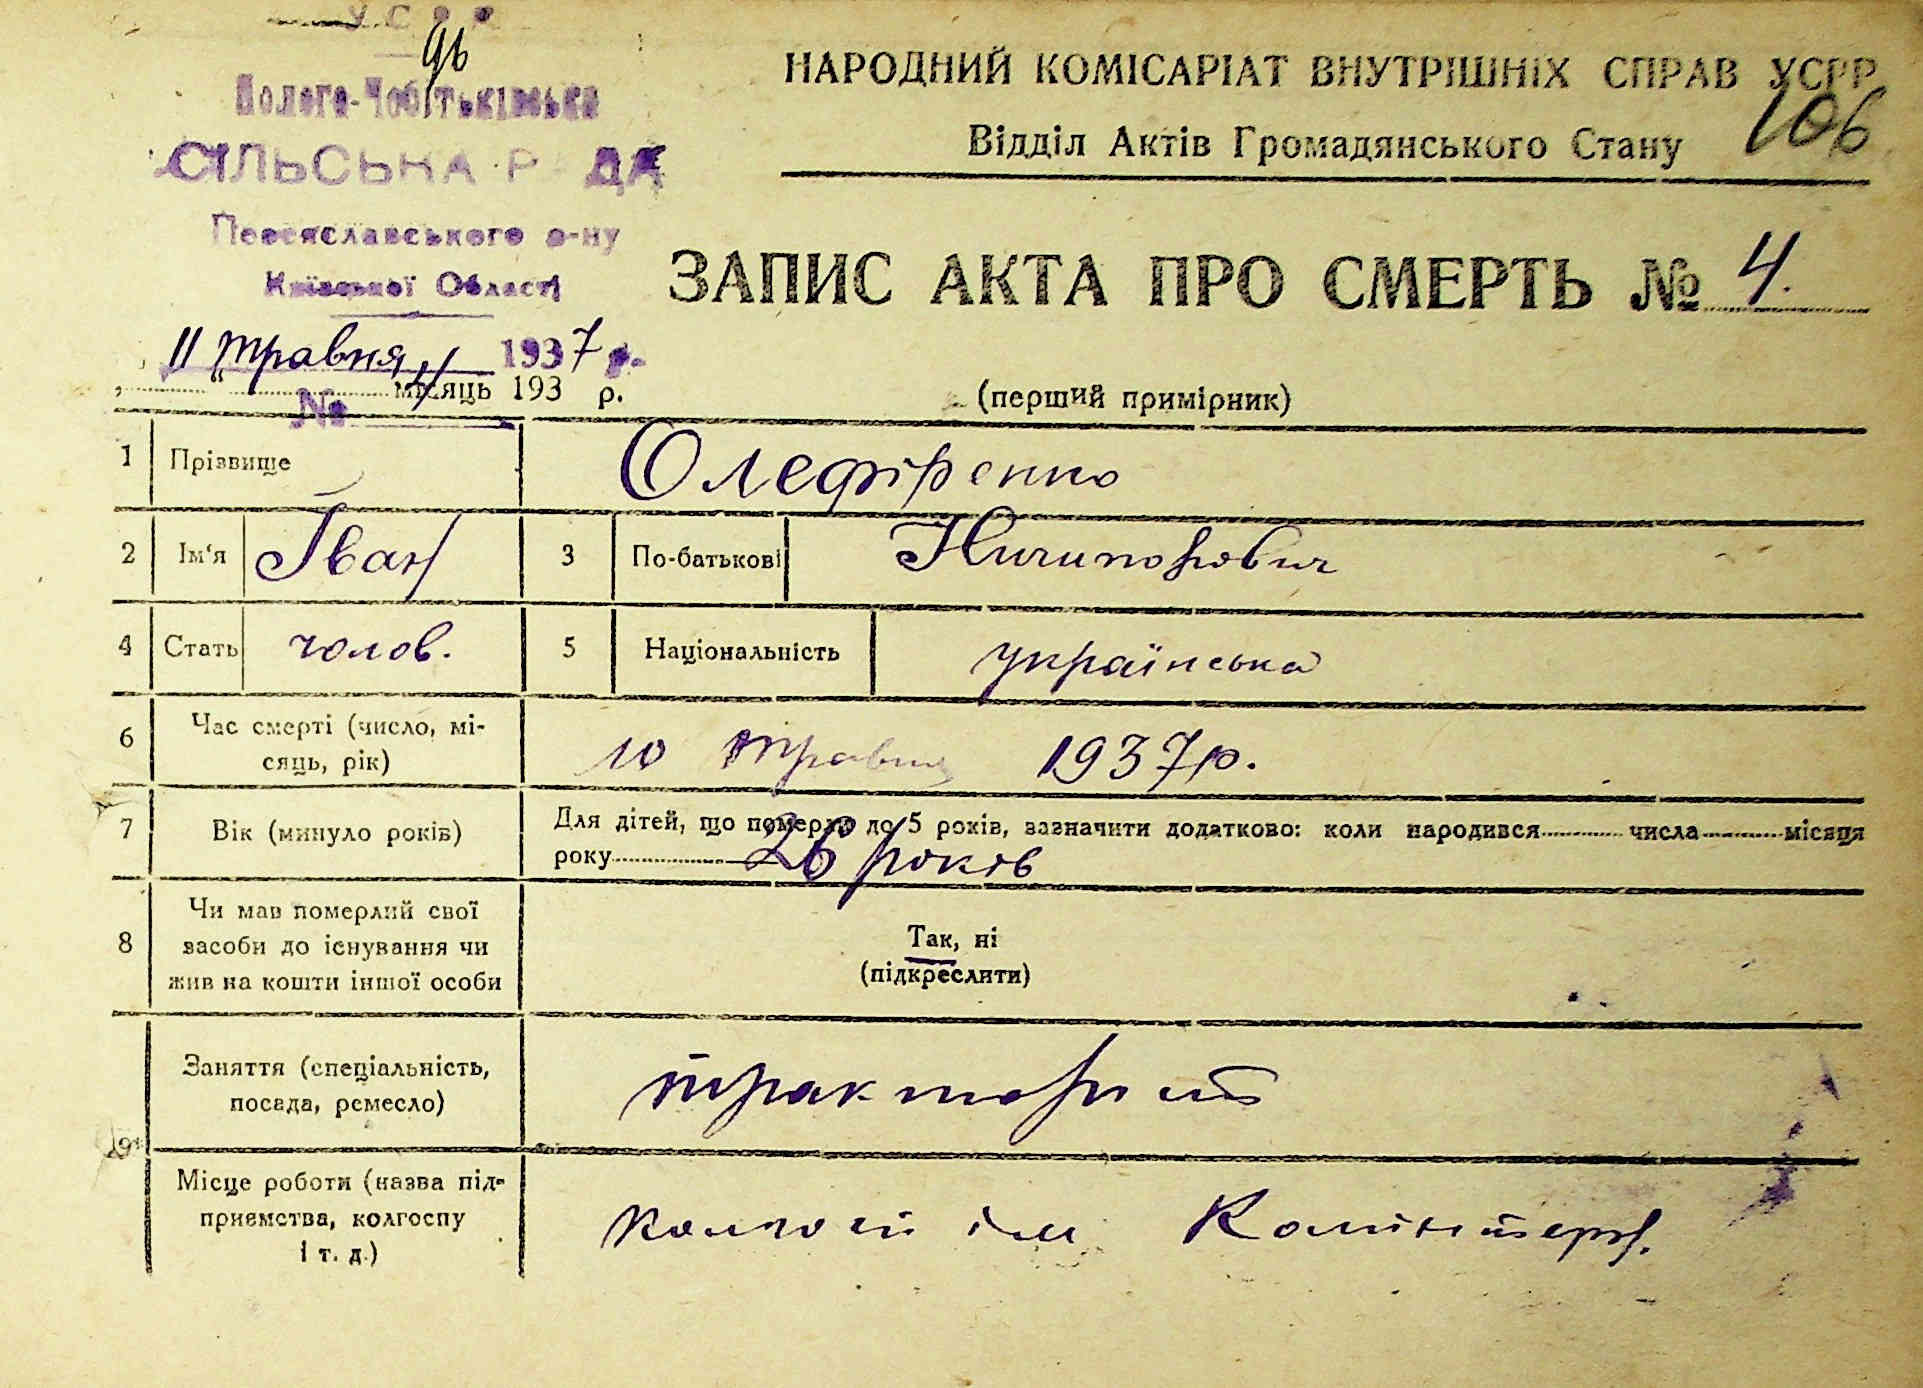 УСРР
96
Полого-Чобітьківська
СІЛЬСЬКА РАДА
Переяславського р-ну
Київської Області
11 травня 1937 р.
№
НАРОДНИЙ КОМІСАРІАТ ВНУТРІШНІХ СПРАВ УСРР
106
Відділ Актів Громадянського Стану
ЗАПИС АКТА ПРО СМЕРТЬ № 4.
„ “ місяць 193 р.
(перший примірник)
1 Прізвище Олефіренко
2 Ім‘я Іван 3 По-батькові Ничипорович
4 Стать чолов. 5 Національність українська
6 Час смерті (число, мі-
сяць, рік) 10 травня 1937 р.
7 Вік (минуло років) Для дітей, що померли до 5 років, зазначити додатково: коли народився числа місяця
року 26 років
8 Чи мав померлий свої
засоби до існування чи
жив на кошти іншої особи
Так, ні
(підкреслити)
9 Заняття (спеціальність,
посада, ремесло) тракторист
Місце роботи (назва під-
приємства, колгоспу
і т. д.) колгосп ім Комінтерн.